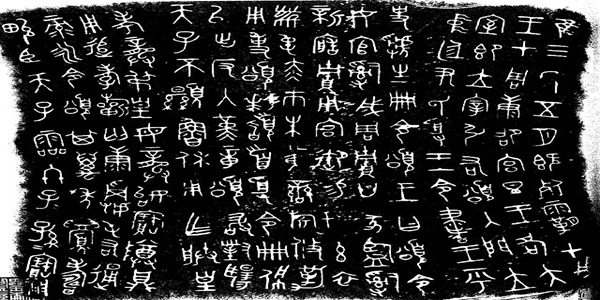 隹三年五月既死霸甲戌
王才周康卲宮旦王各大
室即立宰引右頌入門立
中廷尹氏受王令書王乎
史虢生冊令頌王曰頌令
女官𤔲成周貯廿家監𤔲
新造貯用宮御易女玄衣
黹屯赤巿朱黃鑾旂攸勒
用事頌拜𩒨首受令冊佩
以出反入堇章頌敢對揚
天子不顯魯休用乍朕皇
考龔弔皇母龔始寶尊鼎
用追孝𣄨匄康𠭯屯右通
彔永令頌其萬年眉壽
畯臣天子霝冬子孫寶用